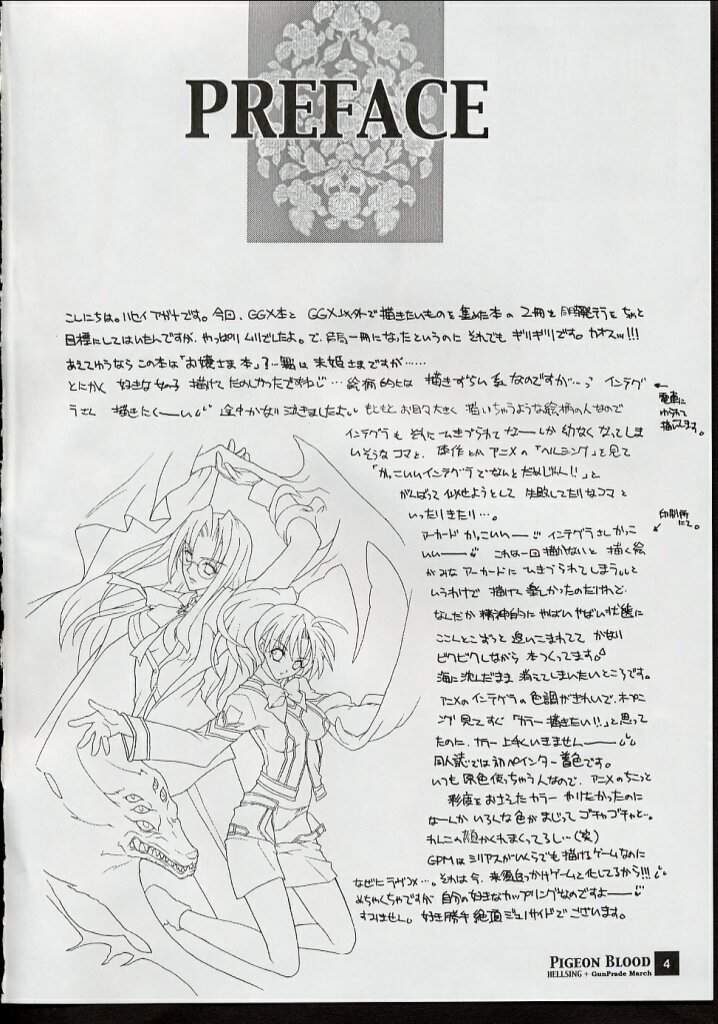 PREFACE
こんにちは。ハセイアガナです。今回、GGX本と GGX以外で描きたいものを集めた本の2冊を
目標にしてはいたんですが、やっぱりムリでしたよ。で、結局一冊になったというのに それでもギリギリです。カオスw!!!
あえてゆうなら この本は「お嬢さま本」?
とにかく 好きな女の子 描けて たのしかったですねじ… 絵柄的には 描きずらい系なのですが…っ インテグ
ラさん 描きにくーい 途中かなり泣きましたよ。 もともと お目々大きく 描いちゃうような絵柄の人なので
電車に
ゆられて
描いてます。
インテグラも それにひきずられて なーんか幼なくなってしま
いそうなコマと、 原作とか アニメの「ヘルシング」を見て
「かっこいいインテグラでなんとだめじゃん!!」と
がんばって似せようとして 失敗してたりなコマと
いったりきたり…。
印刷所
にて。
アーカード かっこいいー インテグラさん かっこ
いいー これは一回描かないと 描く絵
がみな アーカードに ひきずられてしまう。。と
いうわけで 描けて楽しかったのだけれど、
なんだか 精神的に やばいやばい状態に
追いこまれてて かなり
ビクビクしながら 本つくってます。
海に沈んだまま 消えてしまいたいところです。
アニメのインテグラの色調がきれいで、オープニ
ング見てすぐ「カラー描きたい!!」と思って
たのに、カラー上手くいきませんー
同人誌では初ペインター着色です。
いつも原色使っちゃう人なので、アニメのちょっと
彩度をおさえたカラー やりたかったのに
なーんか いろんな色がまじって ゴチャゴチャと。
わんこの顔かくれまくってるし…(笑)
GPMは ミリアスがいくらでも描けるゲームなのに
なぜに ラヴコメ…。それは今、
めちゃくちゃですが 自分の好きなカップリングなのですよー
すみません。好き勝手 絶頂 でございます。
PIGEON BLOOD 4
HELLSING + GunPrade March